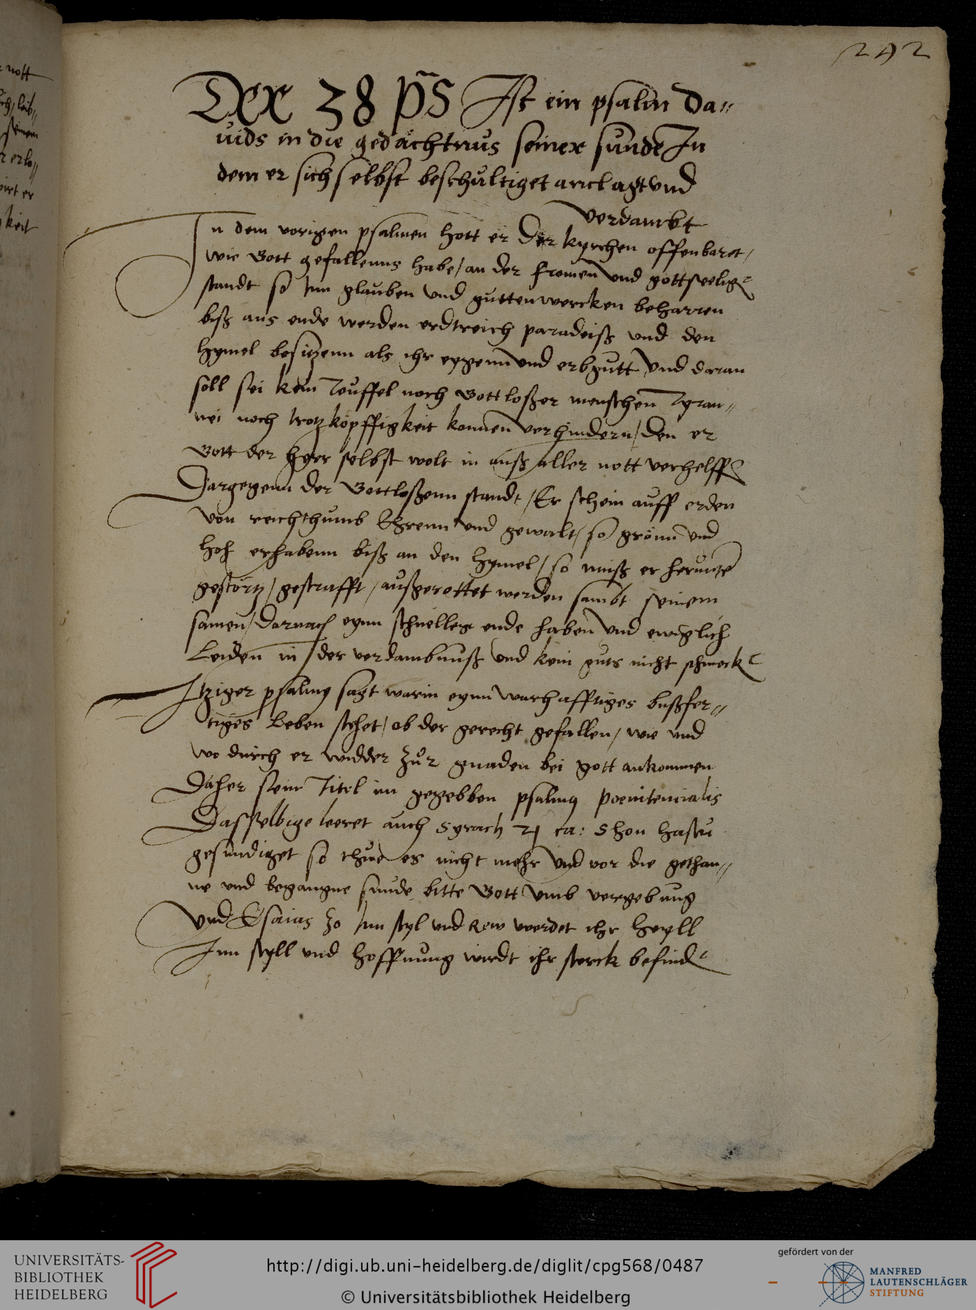 242
Der 38 ps Ist ein psalm da„
uids in die gedächtnus seiner sunde In
dem er sich selbst beschultiget anclagt und
verdampt
In dem vorigen psalmen hott er der kyrchen offenbaret,
wie Gott gefallenns habe, an der fromen und gottselige
standt so inn glauben und gutten wercken beharren
biß ans ende werden erdtreich paradeiß und den
hymel besitzenn als ihr eygenn und erbgutt Und daran
soll sei kein Teuffel noch Gottloßer menschen Tyran„
nei noch trotzköpffigkeit konnen verhindern, den er
Gott der herr selbst wolt in auß aller nott verhelff
Dargegenn der Gottloßenn standt, Er schein auff erden
von reichthumb Ehrenn und gewalt, so grönn und
hoh erhabenn biß an den hymel, so muß er herunter
gestörtz, gestrafft, außgerottet werden sambt seinem
samen, darnach eynn schnelles ende haben und ewiglich
Leiden in der verdambnuß und kein guts nicht schmeck
Itziger psalmg sagt warin eynn warhafftiges bußfer„
tiges Leben stehet, ob der gerecht gefallen, wie und
wo durch er widder zur gnaden bei gott ankommen
Daher sein Titel im gegebben psalmg poenitencialis
Dasselbige leeret auch Syrach 21 ca: Shon hastu
gesundiget so thue es nicht mehr Und vor die gethan„
ne und begangne sunde bitte Gott umb vergebung
Und Esaias 30 Inn styl und rew werdet ihr heyll
Inn styll und hoffnung wirdt ihr sterck befind
nott
keit
UNIVERSITÄTS-
BIBLIOTHEK
HEIDELBERG
http://digi.ub.uni-heidelberg.de/diglit/cpg568/0487
© Universitätsbibliothek Heidelberg
gefördert von der
MANFRED
LAUTENSCHLÄGER
STIFTUNG